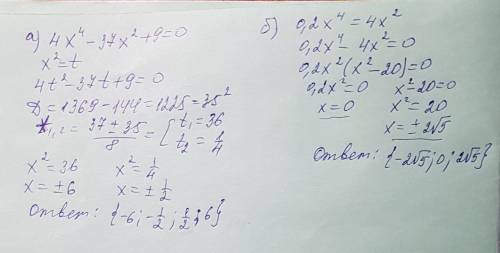 а) 4x⁴-37x²+9=0
x²=t
4t²-37t+9=0
D=1369-144=1225=35²
t₁,₂ = (37±35)/8 = [t₁=36
t₂=1/4
x²=36 x²=1/4
x=±6 x=±1/2
Ответ: {-6; -1/2; 1/2; 6}
б) 0,2x⁴=4x²
0,2x⁴-4x²=0
0,2x²(x²-20)=0
0,2x²=0 x²-20=0
x=0 x²=20
x=±2√5
Ответ: {-2√5; 0; 2√5}